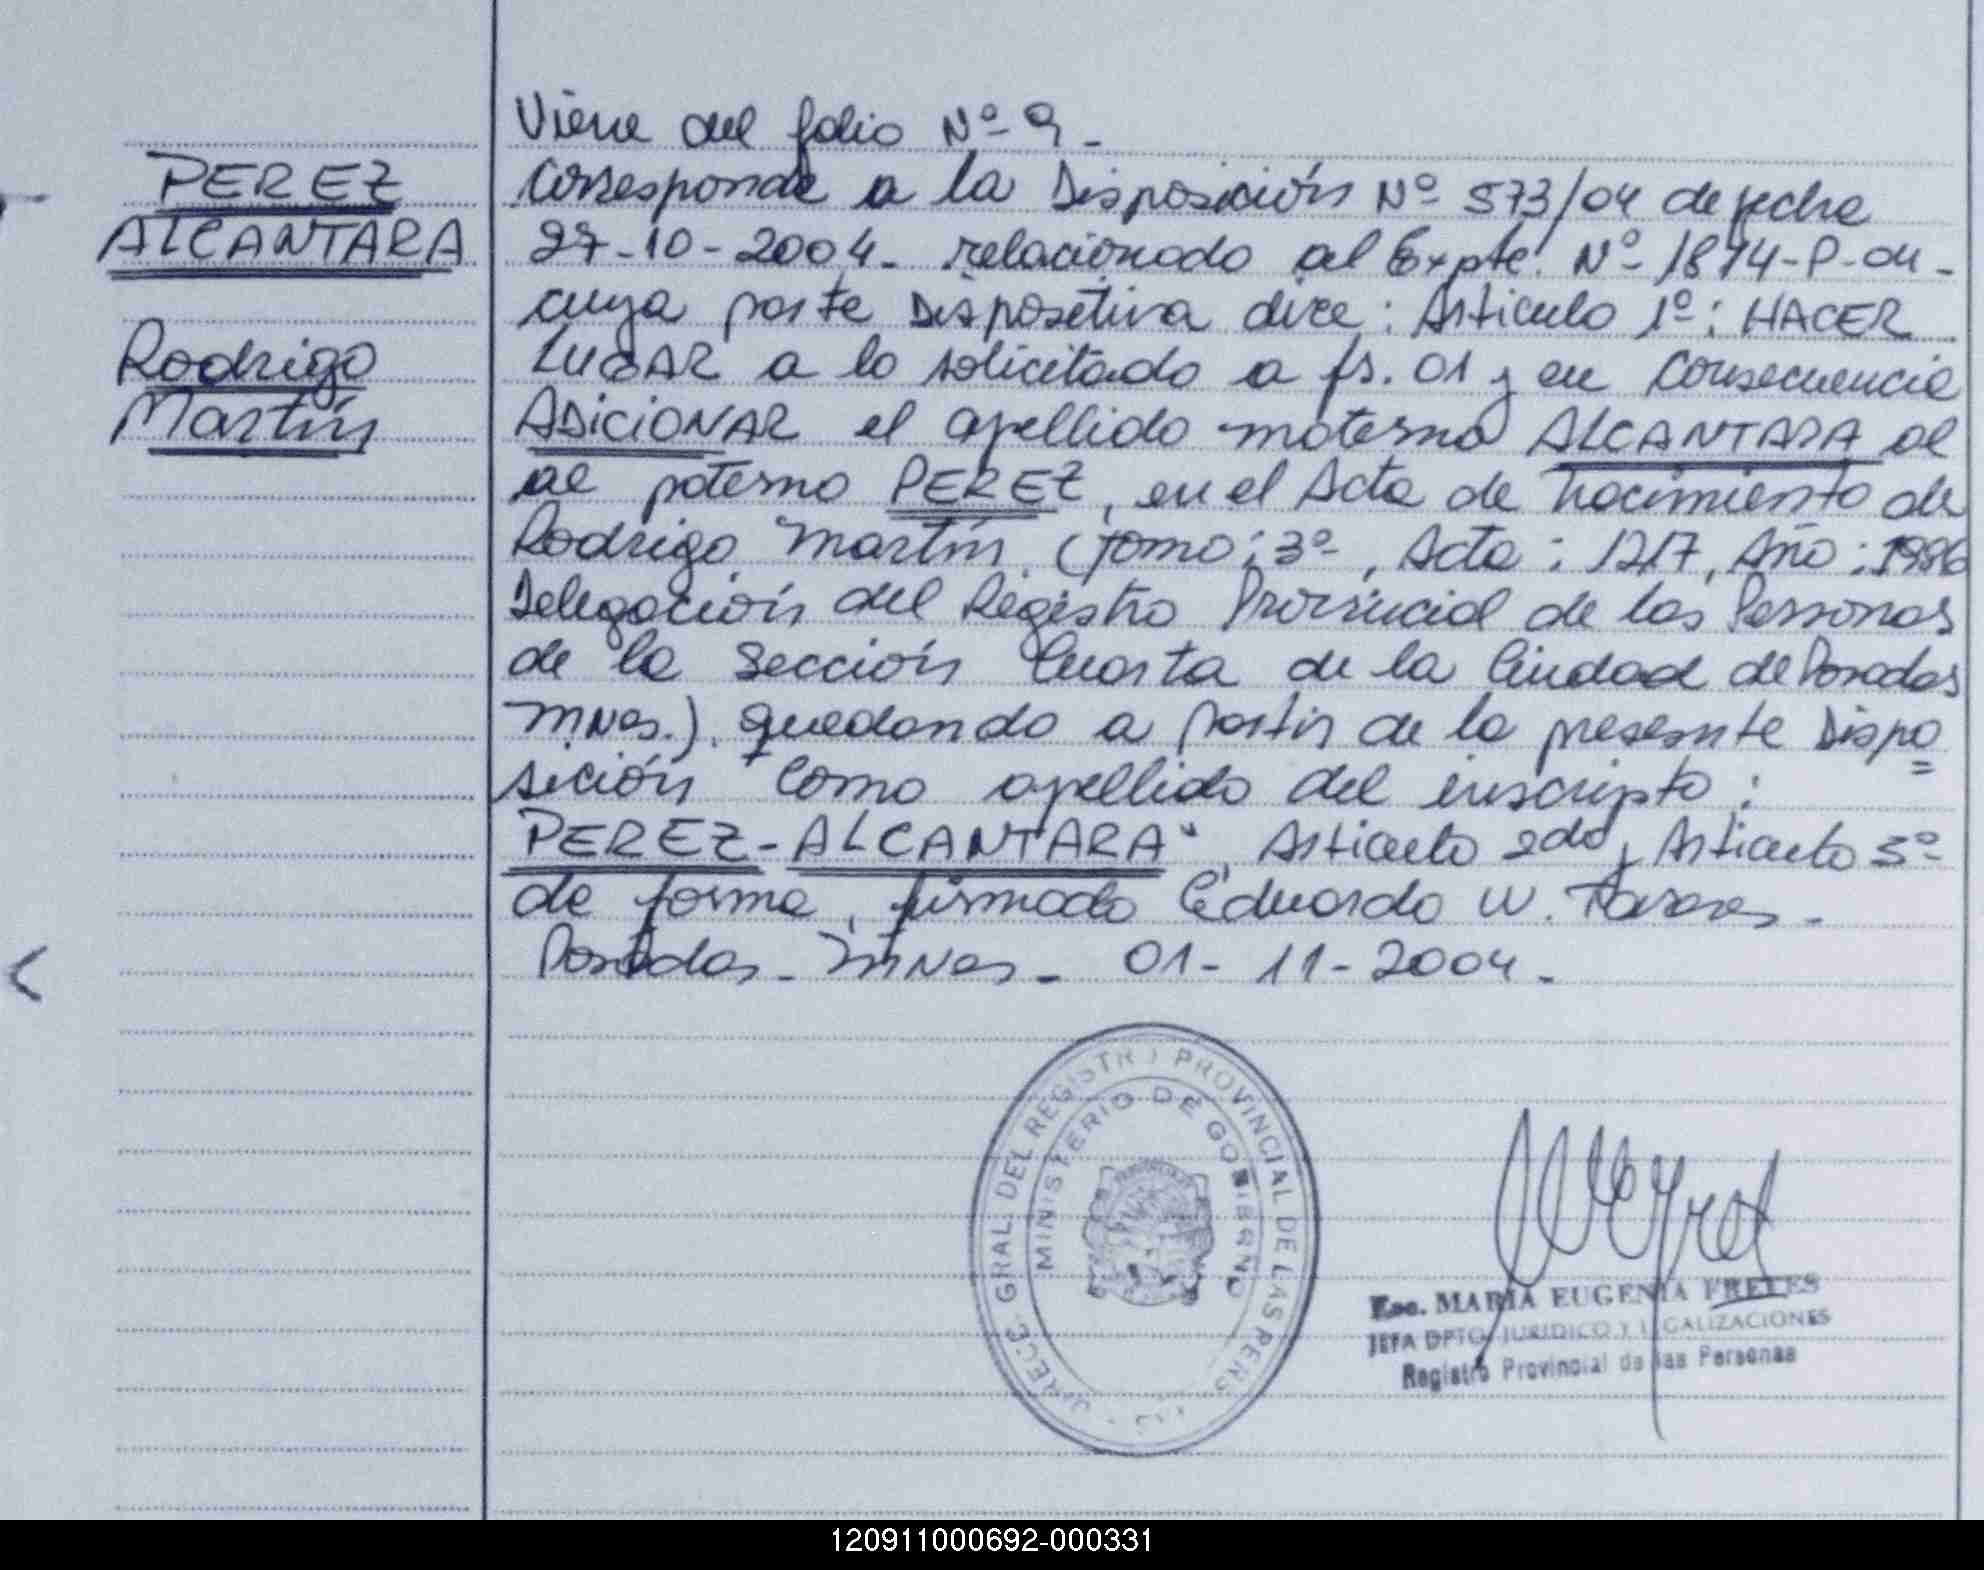 PEREZ
ALCANTARA
Rodrigo
Martín
Viene del folio Nº 9-
Corresponde a la Disposición Nº 573/04 de fecha
27-10-2004- relacionado al Expte. Nº 1874-P-04-
cuya parte Dispositiva dice: Articulo 1º: HACER
LUGAR a lo solicitado a fs. 01 y en consecuencia
ADICIONAR el apellido materno ALCANTARA al
al paterno PEREZ, en el Acta de Nacimiento de
Rodrigo Martín (Tomo: 3º, Acta: 1217, Año: 1996
Delegación del Registro Provincial de las Personas
de la Sección Cuarta de la Ciudad de Posadas
Mnes.), quedando a partir de la presente Dispo
sición como apellido del inscripto:
PEREZ-ALCANTARA", Articulo 2do y Articulo 3º
de forma, firmado Eduardo W.
Posadas - Mnes - 01-11-2004-
GRAL. DEL REGISTRO PROVINCIAL DE LAS PERS
MINISTERIO DE GOBIERNO
Esc. MARIA EUGENIA FRETES
JEFA DPTO. JURIDICO Y LEGALIZACIONES
Registro Provincial de las Personas
120911000692-000331